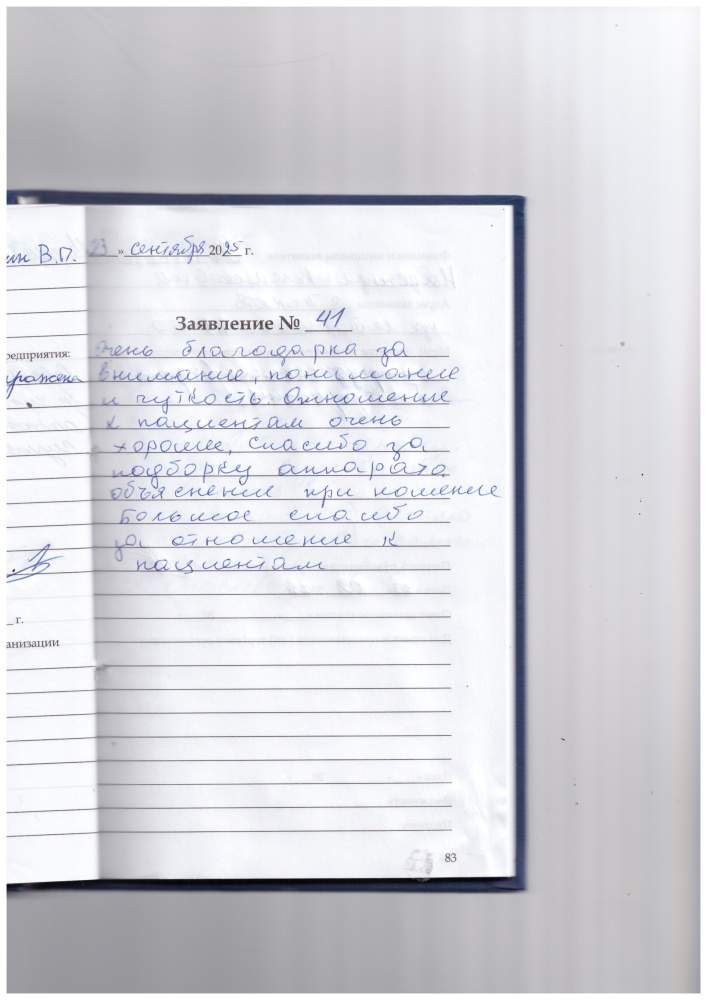 ин В.П.
23 » сентября 2025 г.
Заявление № 41
редприятия:
очень благодарна за
внимание, понимание
и чуткость. Отношение
к пациентам очень
хорошие, спасибо за
подборку аппарата
объяснение при ношение
Большое спасибо
за отношение к
пациентам
_ г.
анизации
83